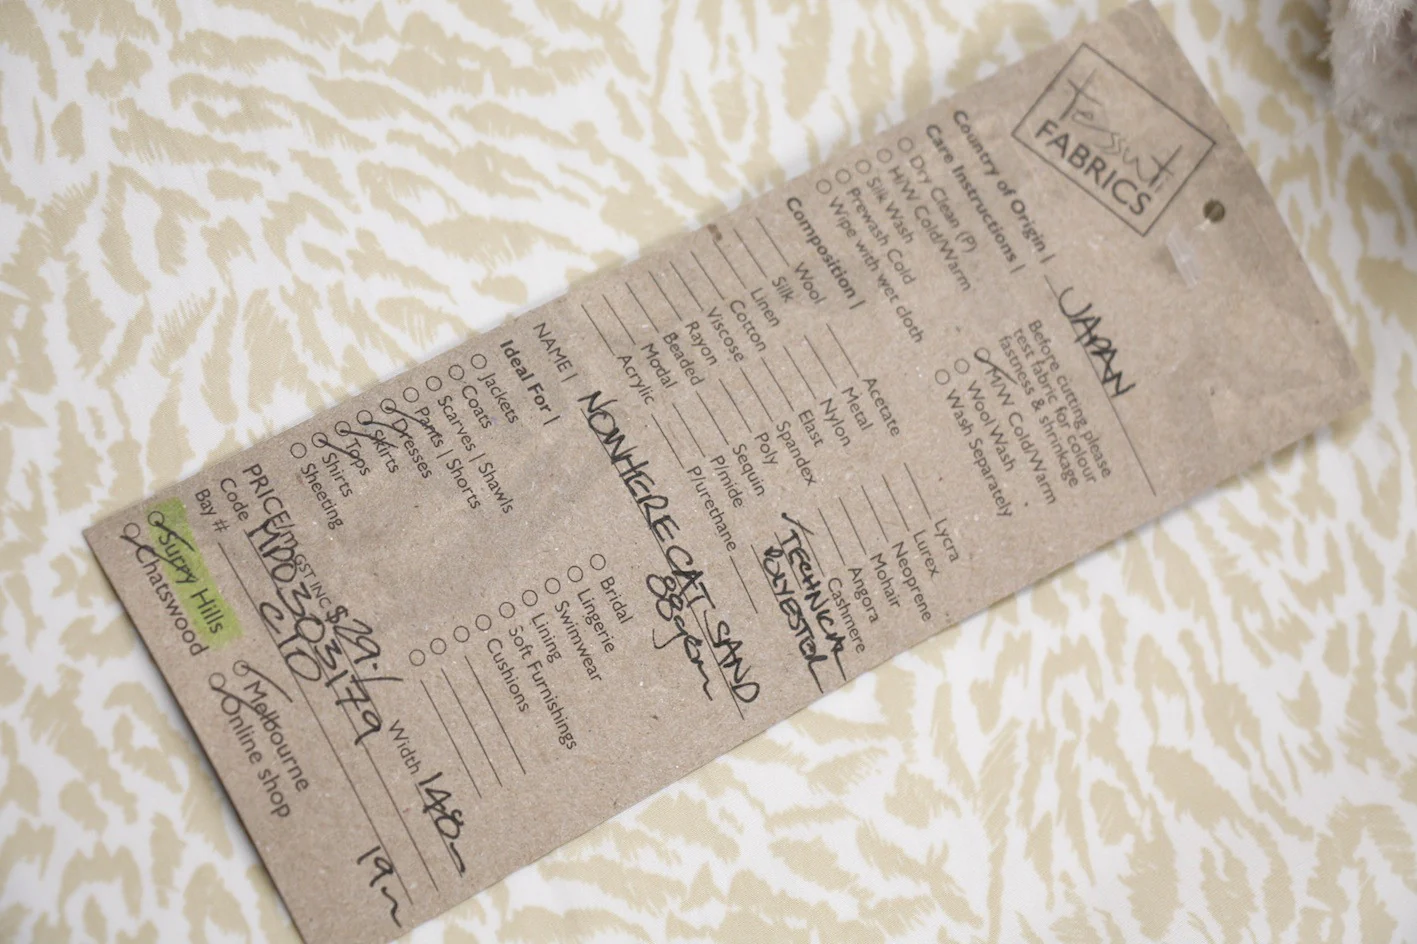 tessuti
FABRICS
Country of Origin | JAPAN
Care Instructions |
Before cutting please
test fabric for colour
fastness & shrinkage
Dry Clean (P)
H/W Cold/Warm
Silk Wash
Prewash Cold
Wipe with wet cloth
M/W Cold/Warm
Wool Wash
Wash Separately
Composition |
Wool
Silk
Linen
Cotton
Viscose
Rayon
Beaded
Modal
Acrylic
Acetate
Metal
Nylon
Elast
Spandex
Poly
Sequin
P/mide
P/urethane
Lycra
Lurex
Neoprene
Mohair
Angora
Cashmere
TECHNICAL
POLYESTER
NAME | NOWHERE CAT SAND
88gsm
Ideal For |
Jackets
Coats
Scarves | Shawls
Pants | Shorts
Dresses
Skirts
Tops
Shirts
Sheeting
Bridal
Lingerie
Swimwear
Lining
Soft Furnishings
Cushions
PRICE/m GST INC $29.- Width 148cm
Code MP0303179
Bay # C10 19m
Surry Hills
Chatswood
Melbourne
Online shop